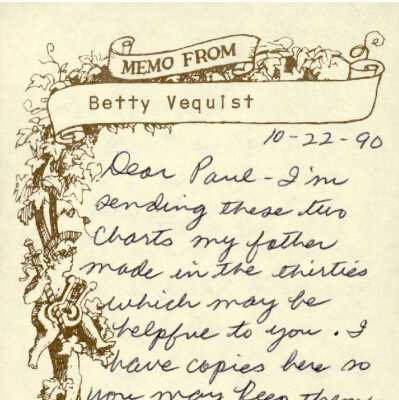 MEMO FROM
Betty Vequist
10-22-90
Dear Paul - I'm
sending these two
charts my father
made in the thirties
which may be
helpful to you. I
have copies here so
you may keep them